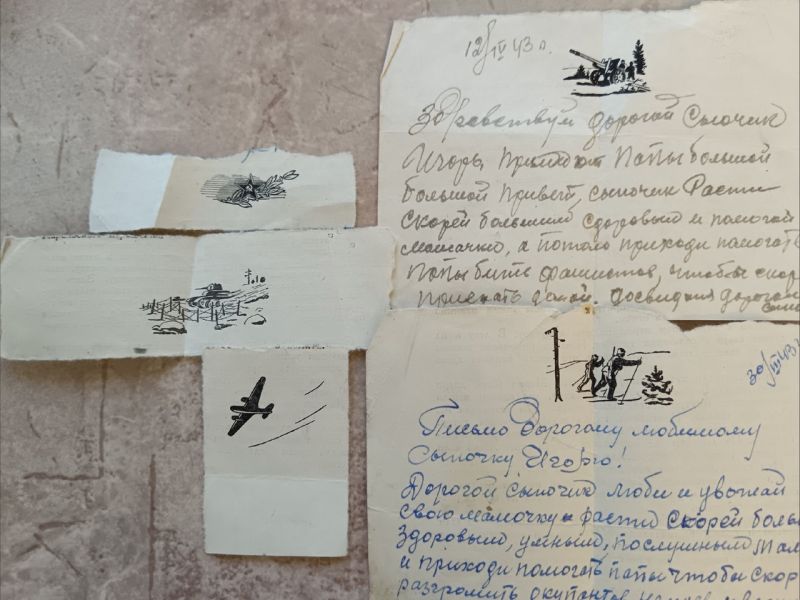 12/IV 43 г.
Здравствуй дорогой Сыночик
Игорь, прими от Папы большой
большой привет, сыночик Расти
скорей большим здоровым и помогай
мамачки, а потом приходи памогать
Папы бить фашистов, чтобы скор
приехать домой. Досвидания дорогой
30/III 43
Письмо Дорогому любимому
Сыночку Игорю!
Дорогой сыночик люби и уважай
свою мамочку расти скорей боль
здоровым, умным, послушным мам
и приходи помогать папы чтобы скор
разгромить окупантов